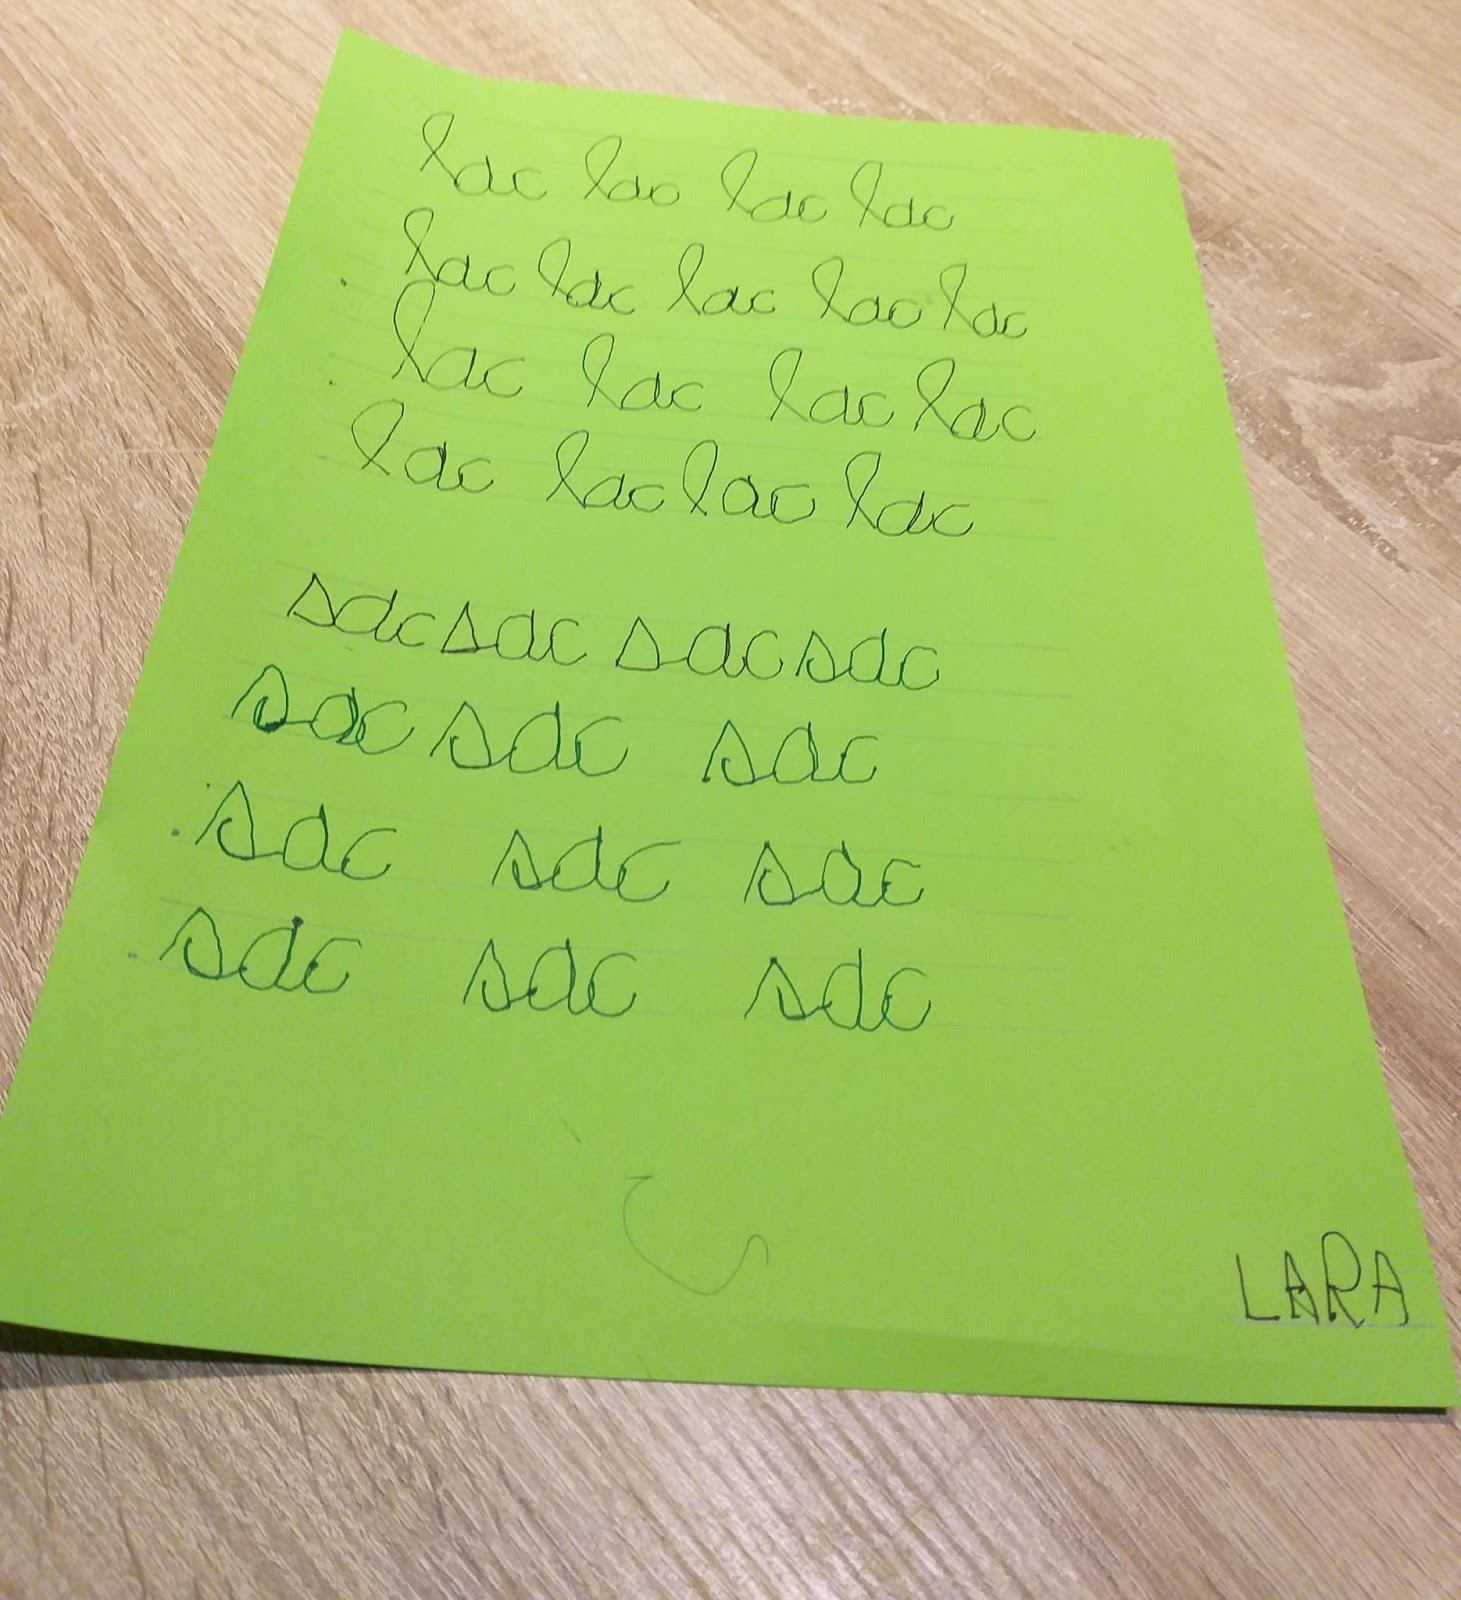 lac lac lac lac
lac lac lac lac lac
lac lac lac lac
lac lac lac lac
sac sac sac sac
sac sac sac
sac sac sac
sac sac sac
LARA